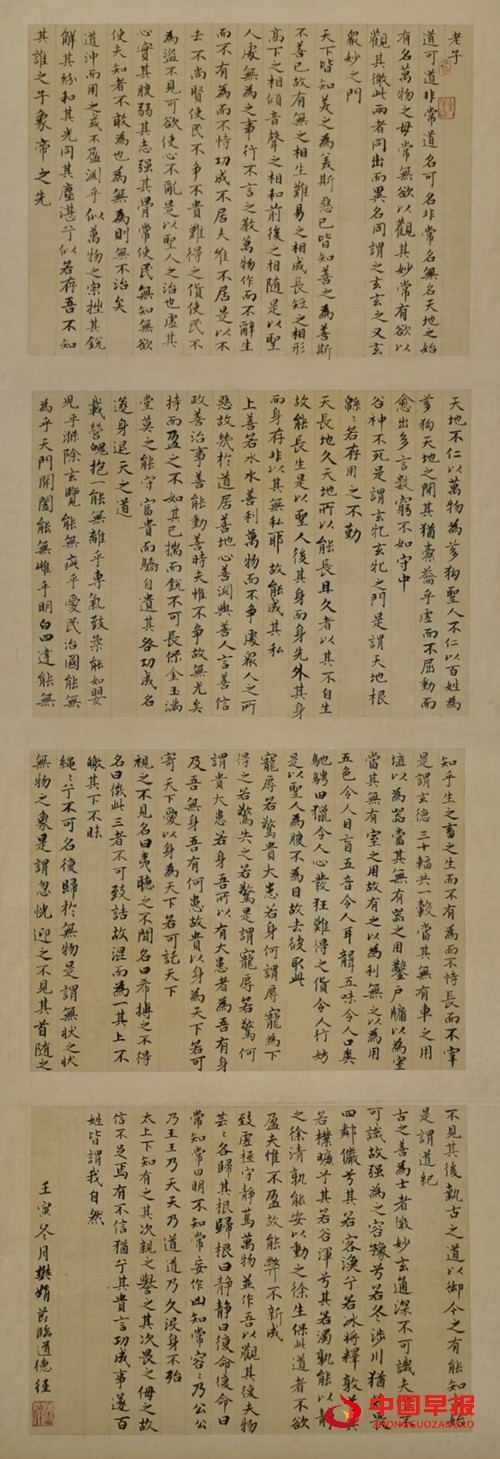 老子
道可道非常道名可名非常名無名天地之始
有名萬物之母常無欲以觀其妙常有欲以
觀其徼此兩者同出而異名同謂之玄玄之又玄
眾妙之門
天下皆知美之為美斯惡已皆知善之為善斯
不善已故有無之相生難易之相成長短之相形
高下之相傾音聲之相和前後之相隨是以聖
人處無為之事行不言之教萬物作而不辭生
而不有為而不恃功成不居夫惟不居是以不
去不尚賢使民不爭不貴難得之貨使民不
為盜不見可欲使心不亂是以聖人之治也虛其
心實其腹弱其志强其骨常使民無知無欲
使夫知者不敢為也為無為則無不治矣
道沖而用之或不盈淵乎似萬物之宗挫其銳
解其紛和其光同其塵湛兮似若存吾不知
其誰之子象帝之先
天地不仁以萬物為芻狗聖人不仁以百姓為
芻狗天地之間其猶橐籥乎虛而不屈動而
愈出多言數窮不如守中
谷神不死是謂玄牝玄牝之門是謂天地根
綿〻若存用之不勤
天長地久天地所以能長且久者以其不自生
故能長生是以聖人後其身而身先外其身
而身存非以其無私耶故能成其私
上善若水水善利萬物而不爭處眾人之所
惡故幾於道居善地心善淵與善人言善信
政善治事善能動善時夫惟不爭故無尤矣
持而盈之不如其已揣而銳不可長保金玉滿
堂莫之能守富貴而驕自遺其咎功成名
遂身退天之道
載營魄抱一能無離乎專氣致柔能如嬰
兒乎滌除玄覽能無疵乎愛民治國能無
為乎天門開闔能無雌乎明白四達能無
知乎生之畜之生而不有為而不恃長而不宰
是謂玄德三十輻共一轂當其無有車之用
埴以為器當其無有器之用鑿戶牖以為室
當其無有室之用故有之以為利無之以為用
五色令人目盲五音令人耳聾五味令人口爽
馳騁田獵令人心發狂難得之貨令人行妨
是以聖人為腹不為目故去彼取此
寵辱若驚貴大患若身何謂辱寵為下
得之若驚失之若驚是謂寵辱若驚何
謂貴大患若身吾所以有大患者為吾有身
及吾無身吾有何患故貴以身為天下若可
寄天下愛以身為天下若可託天下
視之不見名曰夷聽之不聞名曰希搏之不得
名曰微此三者不可致詰故混而為一其上不
皦其下不昧
繩〻兮不可名復歸於無物是謂無狀之狀
無物之象是謂忽恍迎之不見其首隨之
不見其後執古之道以御今之有能知古始
是謂道紀
古之善為士者微妙玄通深不可識夫不
可識故强為之容豫兮若冬涉川猶兮若畏
四鄰儼兮其若客渙兮若冰將釋敦兮其
若樸曠兮其若谷渾兮其若濁孰能以靜
之徐清孰能安以動之徐生保此道者不欲
盈夫惟不盈故能弊不新成
致虛極守靜篤萬物並作吾以觀其復夫物
芸〻各歸其根歸根曰靜靜曰復命復命曰
常知常曰明不知常妄作凶知常容〻乃公公
乃王王乃天天乃道道乃久沒身不殆
太上下知有之其次親之譽之其次畏之侮之故
信不足焉有不信猶兮其貴言功成事遂百
姓皆謂我自然
壬寅冬月樊娟節臨道德經
中国早报
ZHONGGUOZAOBAO